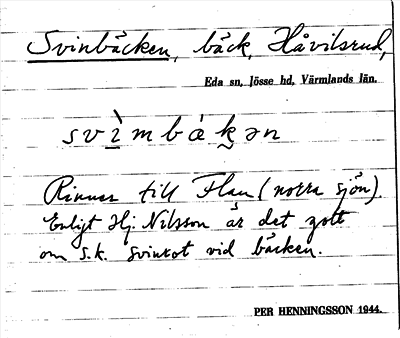 Svinbäcken, bäck, Håvilsrud,
Eda sn, Jösse hd, Värmlands län.
svìmbäkən
Rinner till Flan (norra sjön).
Enligt Hj. Nilsson är det gott
om s.k. svinrot vid bäcken.
PER HENNINGSSON 1944.